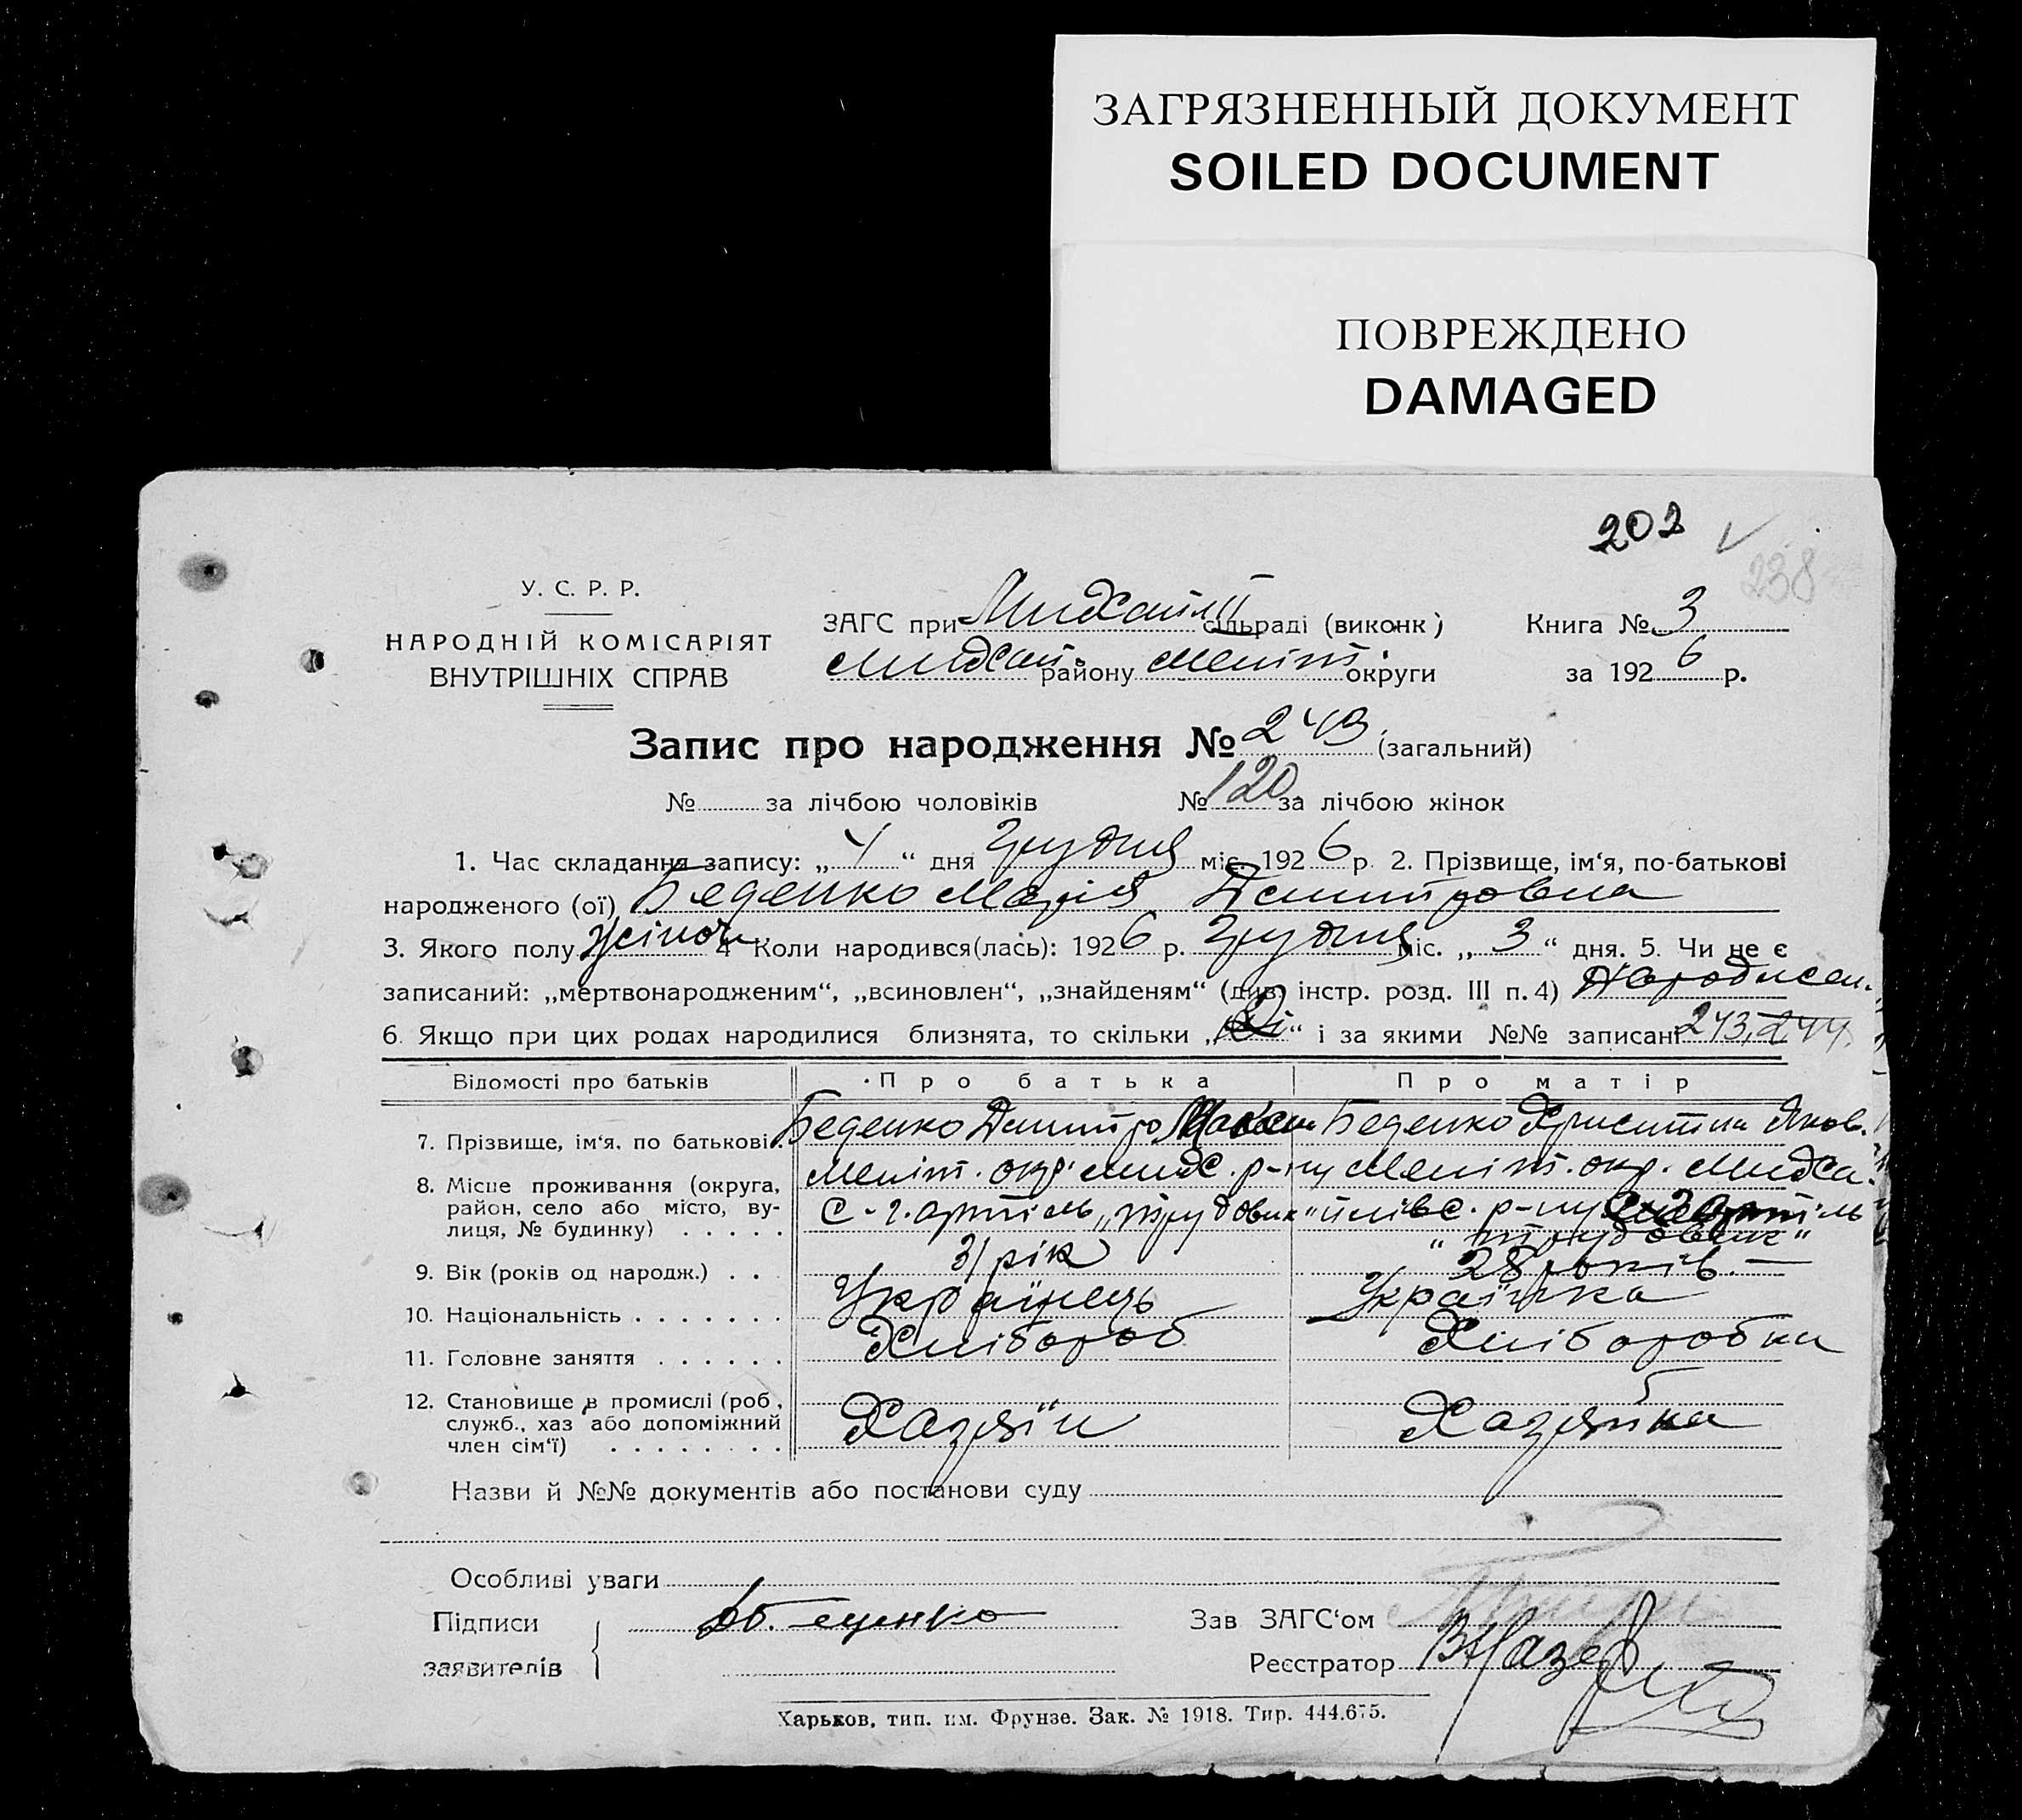 ЗАГРЯЗНЕННЫЙ ДОКУМЕНТ
SOILED DOCUMENT
ПОВРЕЖДЕНО
DAMAGED
202
238
У. С. Р. Р.
НАРОДНІЙ КОМІСАРІЯТ
ВНУТРІШНІХ СПРАВ
ЗАГС при Михайлі сільраді (виконк)
Михай. району Меліт. округи
Книга № 3
за 1926 р.
Запис про народження № 243 (загальний)
№ за лічбою чоловіків № 120 за лічбою жінок
1. Час складання запису: „4“ дня Грудня міс. 1926 р. 2. Прізвище, ім‘я, по-батькові
народженого (ої) Беденко Марія Дмитровна
3. Якого полу жіноч. 4 Коли народився(лась): 1926 р. Грудня міс. „3“ дня. 5. Чи не є
записаний: „мертвонародженим“, „всиновлен“, „знайденям“ (див. інстр. розд. III п. 4)
6. Якщо при цих родах народилися близнята, то скільки „“ і за якими №№ записані 243, 244.
Відомості про батьків Про батька Про матір
7. Прізвище, ім‘я, по батькові. Беденко Дмитро Беденко Христина Яков.
8. Місце проживання (округа, район, село або місто, вулиця, № будинку) Меліт. окр. Мих. р-ну Меліт. окр. Михай
С-г. артіль „трудовик“ р-ну артіль
„трудовик“
9. Вік (років од народж.) 31 рік 28 років. —
10. Національність Українець Українка
11. Головне заняття Хлібороб Хліборобка
12. Становище в промислі (роб, служб., хаз або допоміжний член сім‘ї) Хазяїн Хазяйка
Назви й №№ документів або постанови суду
Особливі уваги
Підписи
заявителів
Зав ЗАГС‘ом
Реєстратор
Харьков, тип. им. Фрунзе. Зак. № 1918. Тир. 444.675.